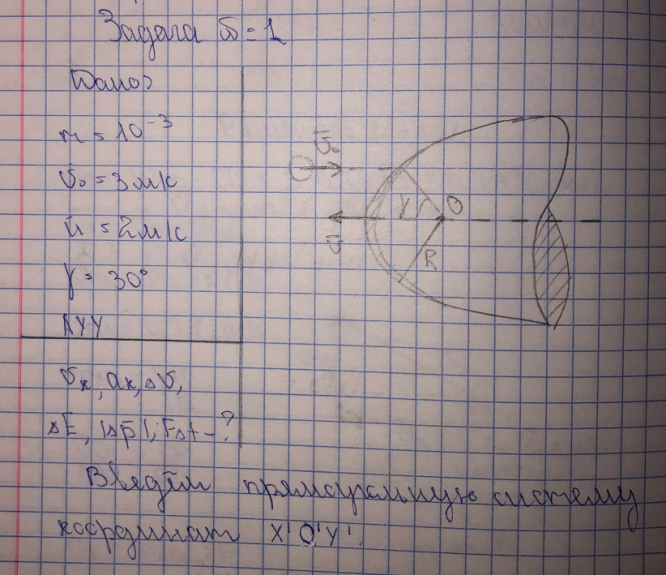 Задача №=1
Дано:
m = 10⁻³
υ₀ = 3 м/с
u = 2 м/с
γ = 30°
АУУ
υк, αк, Δυ,
ΔE, |Δp̄|, FΔt - ?
ῡ₀
γ
O
ū
R
Введём прямоугольную систему
координат X'O'Y'.